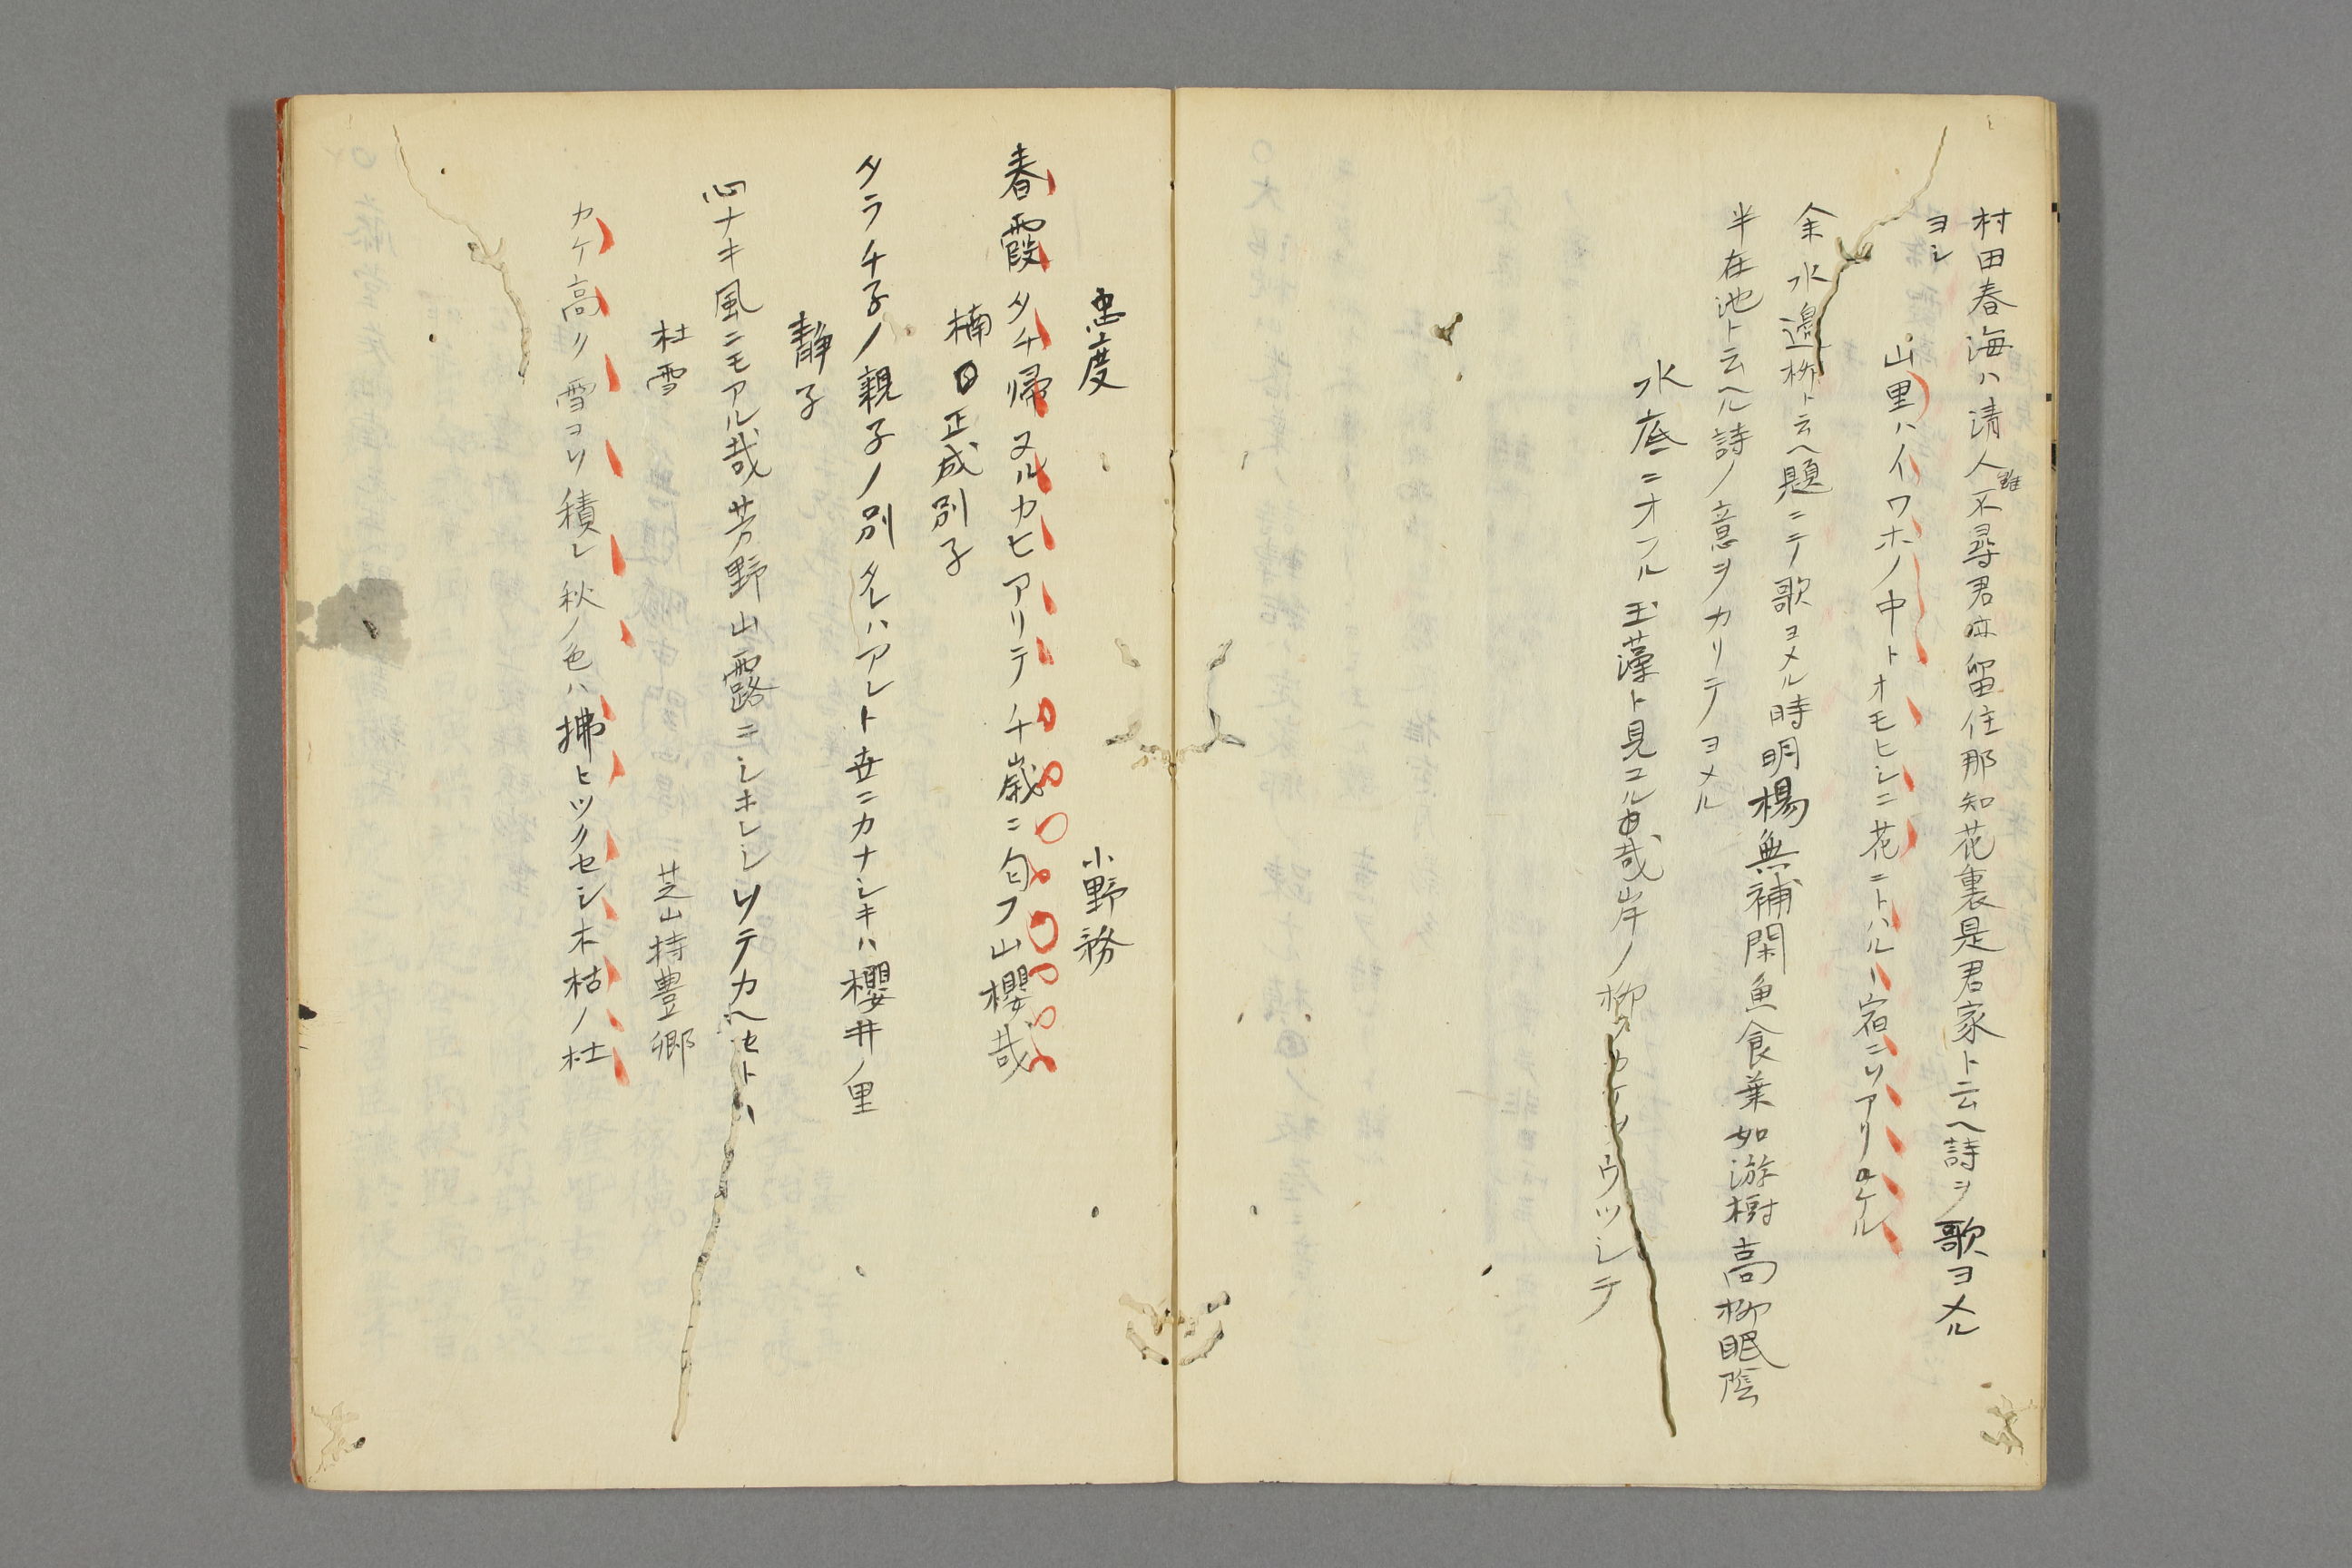 村田春海ハ清人雖不尋君亦留住那知花裏是君家ト云ヘ詩ヲ歌ヨメル
ヨシ
山里ハイワホノ中トオモヒシニ花ニトハルヽ宿ニソアリケル
余水邉柳ト云ヘ題ニテ歌ヨメル時明楊無補閑魚食葉如游樹高柳眠陰
半在池ト云ヘル詩ノ意ヲカリテヨメル
水底ニオフル玉藻ト見ユル哉岸ノ柳ノカケヲウツシテ
忠度 小野務
春霞タチ帰ヌルカヒアリテ千歳ニ匂フ山櫻哉
楠正成別子
タラチ子ノ親子ノ別タレハアレト世ニカナシキハ櫻井ノ里
静子
心ナキ風ニモアル哉芳野山露ニシホレシソテカヘセトハ
杜雪 芝山持豊郷
カケ高ク雪ヨリ積レ秋ノ色ハ拂ヒツクセシ木枯ノ杜